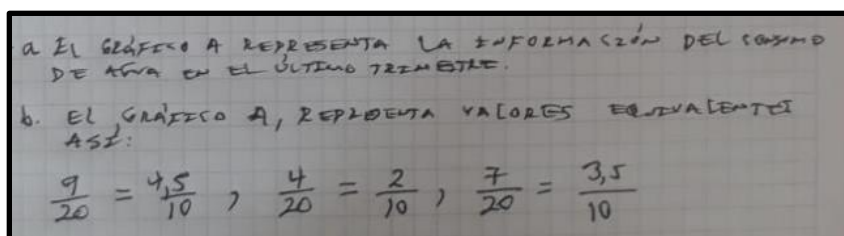 a EL GRÁFICO A REPRESENTA LA INFORMACIÓN DEL CONSUMO
DE AGUA EN EL ÚLTIMO TRIMESTRE.
b. EL GRÁFICO A, REPRESENTA VALORES EQUIVALENTES
ASÍ:
9/20 = 4,5/10 , 4/20 = 2/10 , 7/20 = 3,5/10